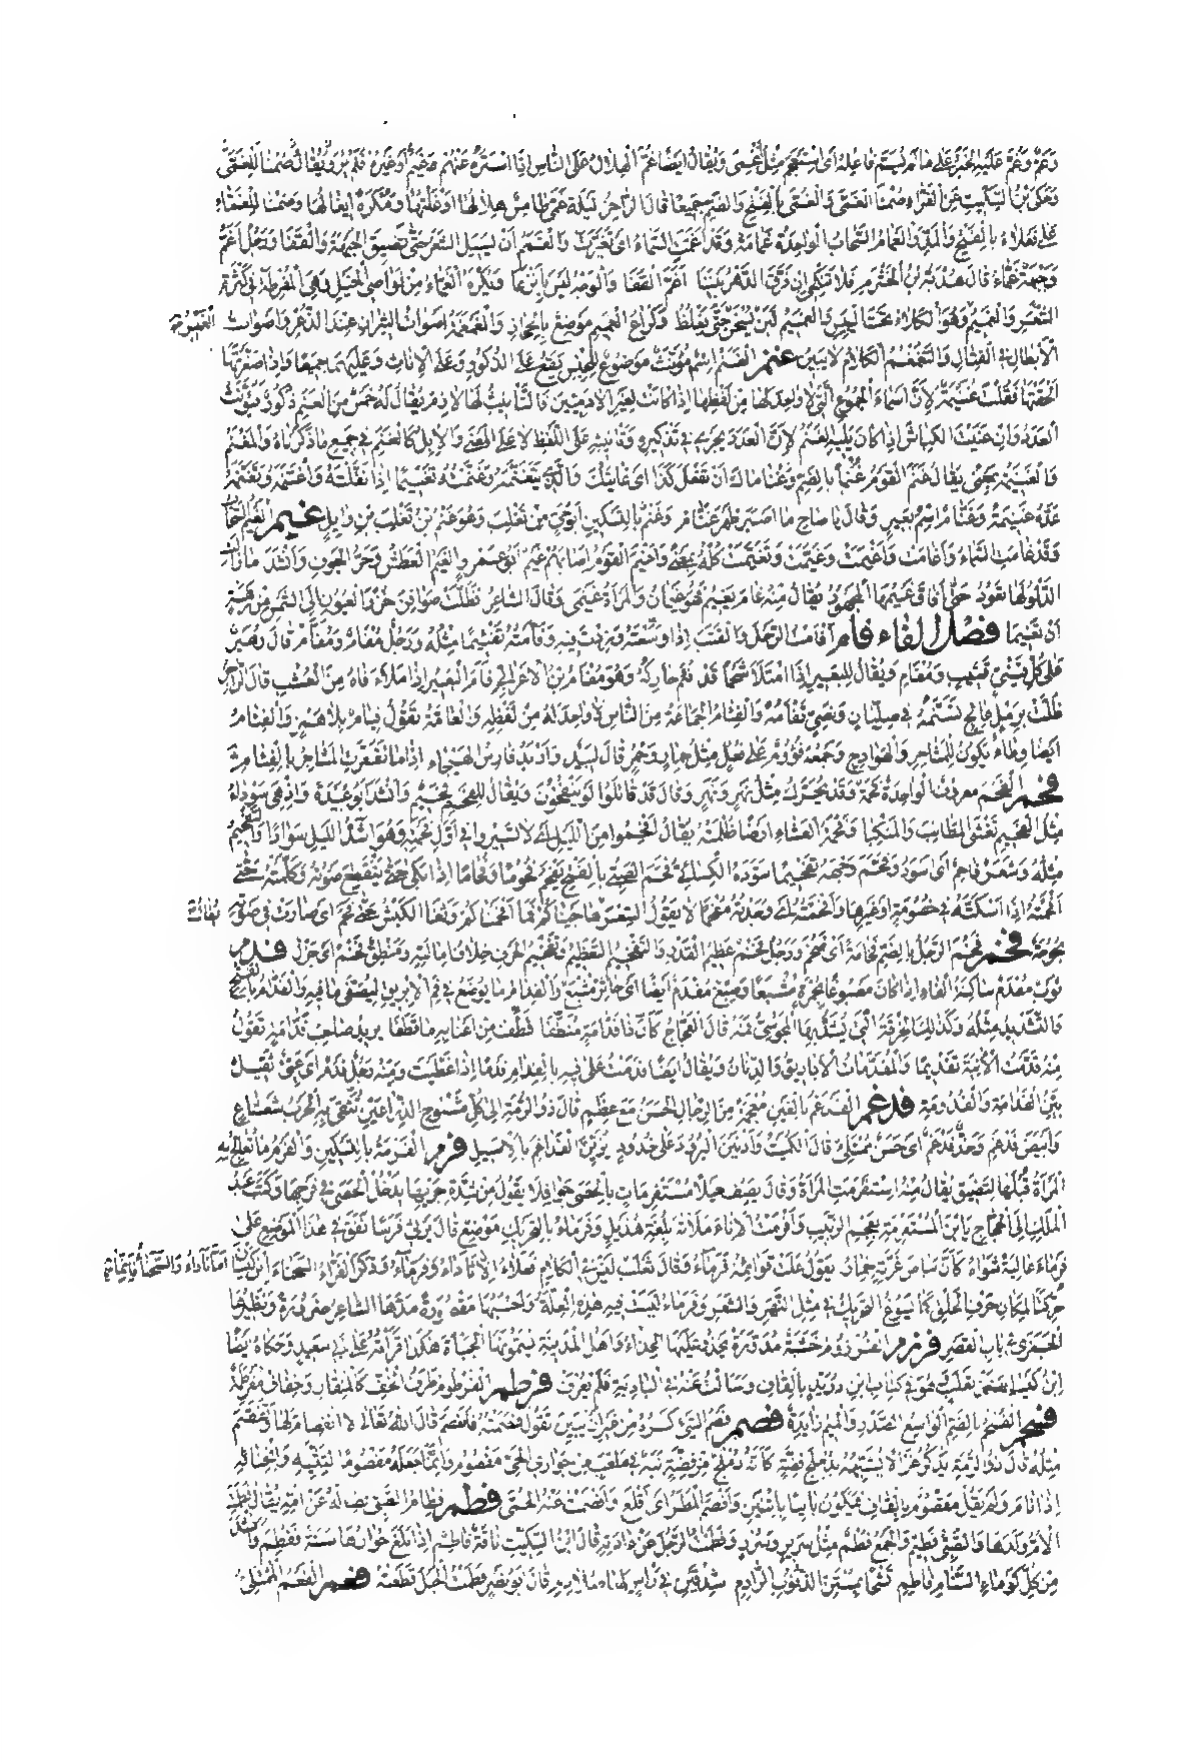 وغم عليه الخبر على ما لم يسم فاعله أى استعجم مثل أغمى ويقال ايضا غم الهلال على الناس اذا ستره عنهم غيم أو غيره فلم ير ويقال صمنا للغمى
وحكى ابن السكيت عن الفراء صمنا الغمى والغمى بالفتح والضم جميعا قال الراجز ليلة غمى طامس هلالها اوغلتها ومكره ايغالها وصمنا للغماء
على فعلاء بالفتح والمد والغمام السحاب الواحدة غمامة وقد أغمت السماء اى تغيرت والغمم أن يسيل الشعر حتى تضيق الجبهة والقفا ورجل أغم
وجبهة غماء قال هدبة بن الخشرم فلا تنكحى ان فرق الدهر بيننا أغم القفا والوجه ليس بانزعا وتكره الغماء من نواصى الخيل وهى المفرطة فى كثرة
الشعر والغميم وهو الكلاء تحت اليبيس والغميم لبن يسخن حتى يغلظ وكراع الغميم موضع بالحجاز والغمغمة اصوات الثيران عند الذعر واصوات
الأبطال فى القتال والتغمغم الكلام لا يبين غنم الغنم اسم مؤنث موضوع للجنس يقع على الذكور وعلى الإناث وعليهما جميعا واذا صغرتها
ألحقتها فقلت غنيمة لأن اسماء الجموع التى لا واحد لها من لفظها اذا كانت لغير الآدميين فالتأنيث لها لازم يقال له خمس من الغنم ذكور فيؤنث
العدد وان عنيت الكباش اذا كان يليه الغنم لأن العدد يجرى فى تذكيره وتأنيثه على اللفظ لا على المعنى والإبل كالغنم فى جميع ما ذكرناه والمغنم
والغنيمة بمعنى يقال غنم القوم غنما بالضم وغناماك أن تفعل كذا اى غايتك والذى يتغنمه وغنمته تغنيما اذا نفلته واغتنمه وتغنمه
عده غنيمة وغنام اسم بعير وقال يا صاح ما اصبر ظهر غنام وغنم بالتسكين أبو حى من تغلب وهو غنم بن تغلب بن وايل غيم الغيم السحاب
وقد غامت السماء وأغامت وأغيمت وغيمت وتغيمت كله بمعنى وأغيم القوم اصابهم غيم ابو عمرو الغيم العطش وحر الجوف وانشد ما زالت
الدلو لها تعود حتى أفاق غيمها المجهود يقال منه غام يغيم فهو غيمان والمرأة غيمى وقال الشاعر فظلت صوافن خزر العيون الى الشمس من رهبة
أن تغيما فصل الفاء فام أفأمت الرحل والقتب اذا وسعته وزدت فيه وفأمته تفئيما مثله ورحل مفأم ومفأم قال زهير
على كل قينى قشيب ومفأم ويقال للبعير اذا امتلأ شحما قد فئم حاركه وهو مفأم ابن الاعرابى فأم البعير اذا ملأ فاه من العشب قال الراجز
ظلت برمل عالج تسنمه فى صليان ونصى تفأمه والفئام الجماعة من الناس لا واحد له من لفظه والعامة تقول فيام بلا همز والفئام
ايضا وطاء يكون للمشاجر والهوادج وجمعه فؤوم على فعل مثل حمار وحمر قال لبيد وأربد فارس الهيجاء اذا ما تقعرت المشاجر بالفئام
فحم الفحم معروف الواحدة فحمة وقد يحرك مثل نهر ونهر وقال قد قاتلوا لو ينفخون ويقال للفحم فحيم وانشد ابو عبيدة واذ هى سوداء
مثل الفحيم تغشى المطانب والمنكبا وفحمة العشاء ايضا ظلمته يقال افحموا من الليل اى لا تسيروا فى أول فحمته وهو اشد الليل سوادا والتفحيم
مثله وشعر فاحم اى اسود وفحم وجهه تفحيما سوده الكسائى فحم الصبى بالفتح يفحم فحوما وفحاما اذا بكى حتى ينقطع صوته وكلمته حتى
افحمته اذا اسكته فى خصومة او غيرها وافحمته اى وجدته مفحما لا يقول الشعر هاجيناكم فما افحمناكم وثغا الكبش حتى فحم اى صارت فى صوته
بحوحة فخم فخم الرجل بالضم فخامة أى ضخم ورجل فخم عظيم القدر والتفخيم التعظيم وتفخيم الحرف خلاف امالته ومنطق فخم اى جزل فدم
ثوب مفدم ساكنة الفاء اذا كان مصبوغا بحمرة مشبعا وصبغ مفدم أيضا أى خاثر مشبع والفدام ما يوضع فى فم الابريق ليصفى ما فيه والفدام بالفتح
والتشديد مثله وكذلك الخرقة التى يشد بها المجوسى فمه قال العجاج كأن ذا فدامة منطفا قطف من اعنابه ما قطفا يريد صاحب فدامة تقول
منه فدمت الآنية تفديما والمفدمات الأباريق والدنان ويقال ايضا فدمت على فيه بالفدام فدما اذا غطيت ومنه رجل فدم اى عيى ثقيل
بين الفدامة والفدومة فدغم الفدغم بالغين معجمة من الرجال الحسن مع عظم قال ذو الرمة الى كل مشبوح الذراعين تتقى به الحرب شعشاع
وأبيض فدغم وخد فدغم أى حسن ممتلئ قال الكميت وأدنين البرود على خدود يزين الفداغم بالأسيل فرم الفرم بالتسكين والفرمة ما تعالج به
المرأة قبلها ليضيق يقال منه استفرمت المرأة وقال يصف خيلا مستفرمات بالحصى جوافلا يقول من شدة جريها يدخل الحصى فى فرجها وكتب عبد
الملك الى الحجاج يا ابن المستفرمة بعجم الزبيب وأفرمت الإناء ملأته بلغة هذيل وفرماء بالتحريك موضع قال يرثى فرسا نفق فى هذا الموضع على
فرماء عالية شواه كأن بياض غرته خمار يقول علت قوائمه فرماء وقال ثعلب ليس فى الكلام فعلاء الا ثأداء وفرماء وذكر الفراء السحناء ابن كيسان أما الثأداء والسحناء فانما
حركتا لمكان حرف الحلق كما يسوغ التحريك فى مثل النهر والشعر وفرماء ليست فيه هذه العلة وأحسبها مقصورة مدها الشاعر ضرورة ونظيرها
الجمزى فى باب القصر فرزم الفرزوم خشبة مدورة يحذو عليها الحذاء وأهل المدينة يسمونها الجبأة هكذا قرأته على ابى سعيد وحكاه ايضا
ابن كيسان عن ثعلب هو فى كتاب ابن دريد بالقاف وسألت عنه فى البادية فلم يعرف فرطم الفرطوم طرف الخف كالمنقار وخفاف مفرطمة
فسحم الفسحم بالضم الواسع الصدر والميم زايدة فصم فصم الشىء كسره من غير ان يبين تقول فصمته فانفصم قال الله تعالى لا انفصام لها وتفصم
مثله قال ذو الرمة يذكر غزالا يشبهه بدملج فضة كأنه دملج من فضة نبه فى ملعب من جوارى الحى مفصوم وانما جعله مفصوما لتثنيه وانحنائه
اذا نام ولم يقل مقصوم بالقاف فيكون باينا باثنين وأفصم المطر اى أقلع وأفصمت عنه الحمى فطم فطام الصبى فصاله عن امه يقال فطمت
الام ولدها والصبى فطيم والجمع فطم مثل سرير وسرر وفطمت الرجل عن عادته قال ابن السكيت ناقة فاطم اذا بلغ حوارها سنة ففطم وانشد
من كل كوماء السنام فاطم تشحا بمستن الذنوب الراذم شدقين فى رأس لها صلادم قال ابو نصر فطمت الحبل قطعته فعم الفعم الممتلئ